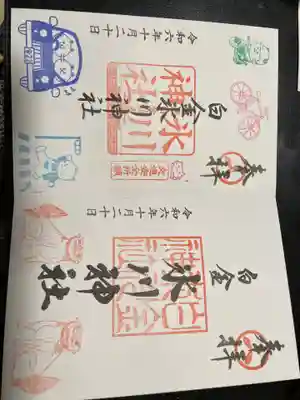 奉拝
白金氷川神社
氷川神社
交通安全祈願
令和六年十月二十日
奉拝
白金
氷川神社
令和六年十月二十日